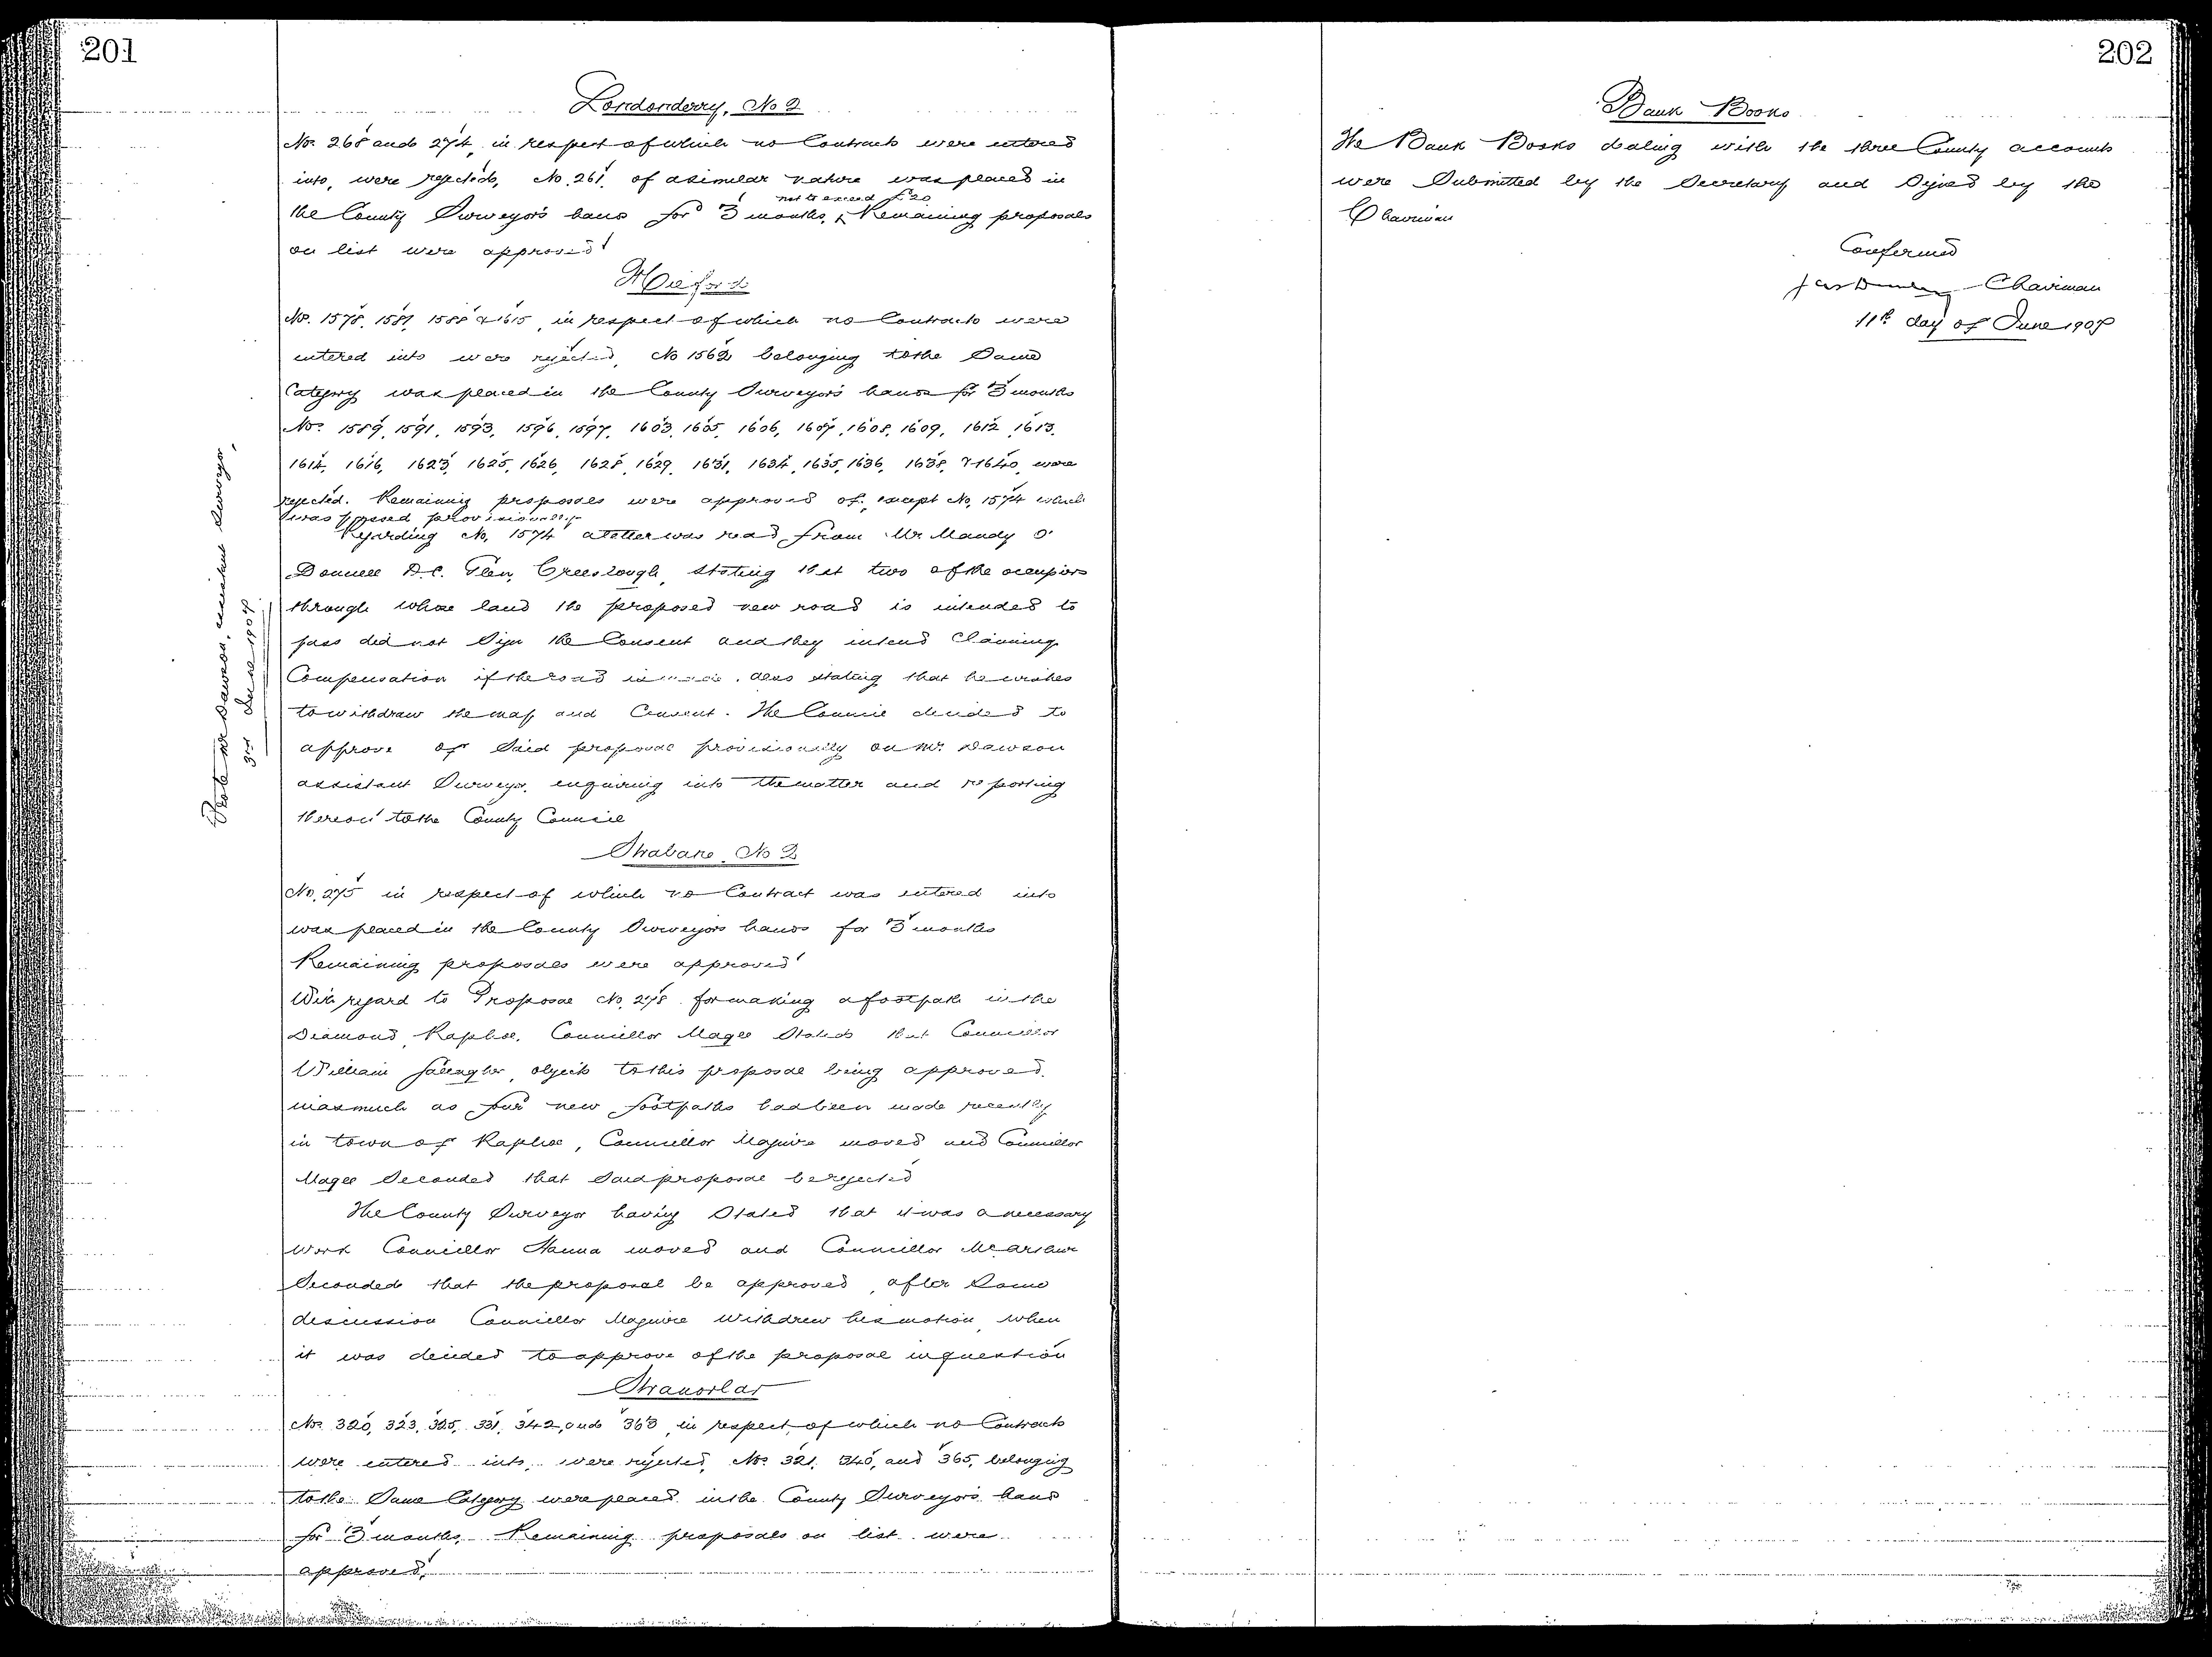 201
Londonderry, No 2
Nos. 268 and 274, in respect of which no Contracts were entered
into, were rejected, No. 261, of a similar nature was placed in
not to exceed £20
the County Surveyor's hands for 3 months, Remaining proposals
on list were approved
Milford
Nos. 1578, 1581, 1588 & 1615, in respect of which no Contracts were
entered into were rejected, No 1562 belonging to the Same
Category was placed in the County Surveyor's hands for 3 months
Nos. 1589, 1591, 1593, 1596, 1597, 1603, 1605, 1606, 1607, 1608, 1609, 1612, 1613,
1614, 1616, 1623, 1625, 1626, 1628, 1629, 1631, 1634, 1635, 1636, 1638, & 1640, were
rejected. Remaining proposals were approved of, except No. 1574 which
was passed provisionally
Regarding No. 1574 a letter was read from Mr. Mandy O'
Donnell D.C. Glen, Creeslough, stating that two of the occupiers
through whose land the proposed new road is intended to
pass did not Sign the Consent and they intend Claiming
Compensation if the road is made, also stating that he wishes
to withdraw the map and Consent. The Council decided to
approve of Said proposal provisionally on Mr. Dawson
assistant Surveyor, enquiring into the matter and reporting
thereon to the County Council
Wrote Mr Dawson, assistant Surveyor,
3rd June 1907
Strabane, No 2
No. 275 in respect of which no Contract was entered into
was placed in the County Surveyors hands for 3 months
Remaining proposals were approved
With regard to Proposal No. 278 for making a footpath in the
Diamond, Raphoe, Councillor Magee Stated that Councillor
William Gallagher, objects to this proposal being approved,
inasmuch as four new footpaths had been made recently
in town of Raphoe, Councillor Maguire moved and Councillor
Magee Seconded that Said proposal be rejected
The County Surveyor having Stated that it was a necessary
work Councillor Hanna moved and Councillor
Seconded that the proposal be approved, after Some
discussion Councillor Maguire withdrew his motion, when
it was decided to approve of the proposal in question
Stranorlar
Nos. 320, 323, 325, 331, 342, and 363, in respect of which no Contracts
were entered into, were rejected, Nos. 321, 340, and 365, belonging
to the Same Category were placed in the County Surveyor's hand
for 3 months, Remaining proposals on list were
approved,
202
Bank Books
The Bank Books dealing with the three County accounts
were Submitted by the Secretary and Signed by the
Chairman
Confirmed
Chairman
11th day of June 1907